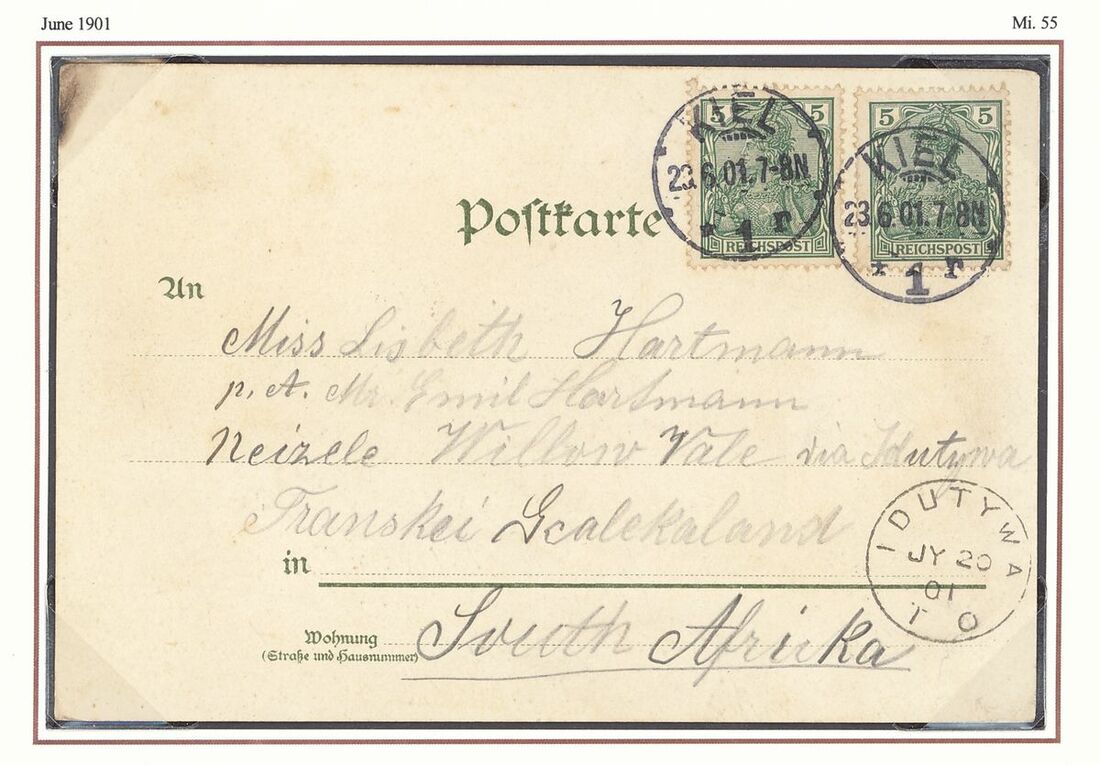 June 1901
Mi. 55
5 5
5 5
REICHSPOST
REICHSPOST
KIEL
23.6.01.7-8N
* 1 r
KIEL
23.6.01.7-8N
* 1 r
Postkarte
An
Miss Lisbeth Hartmann
p. A. Mr. Emil Hartmann
Neizele Willow Vale via Idutywa
Transkei Gcalekaland
in
South Afrika
Wohnung
(Straße und Hausnummer)
IDUTYWA
JY 20
01
T O